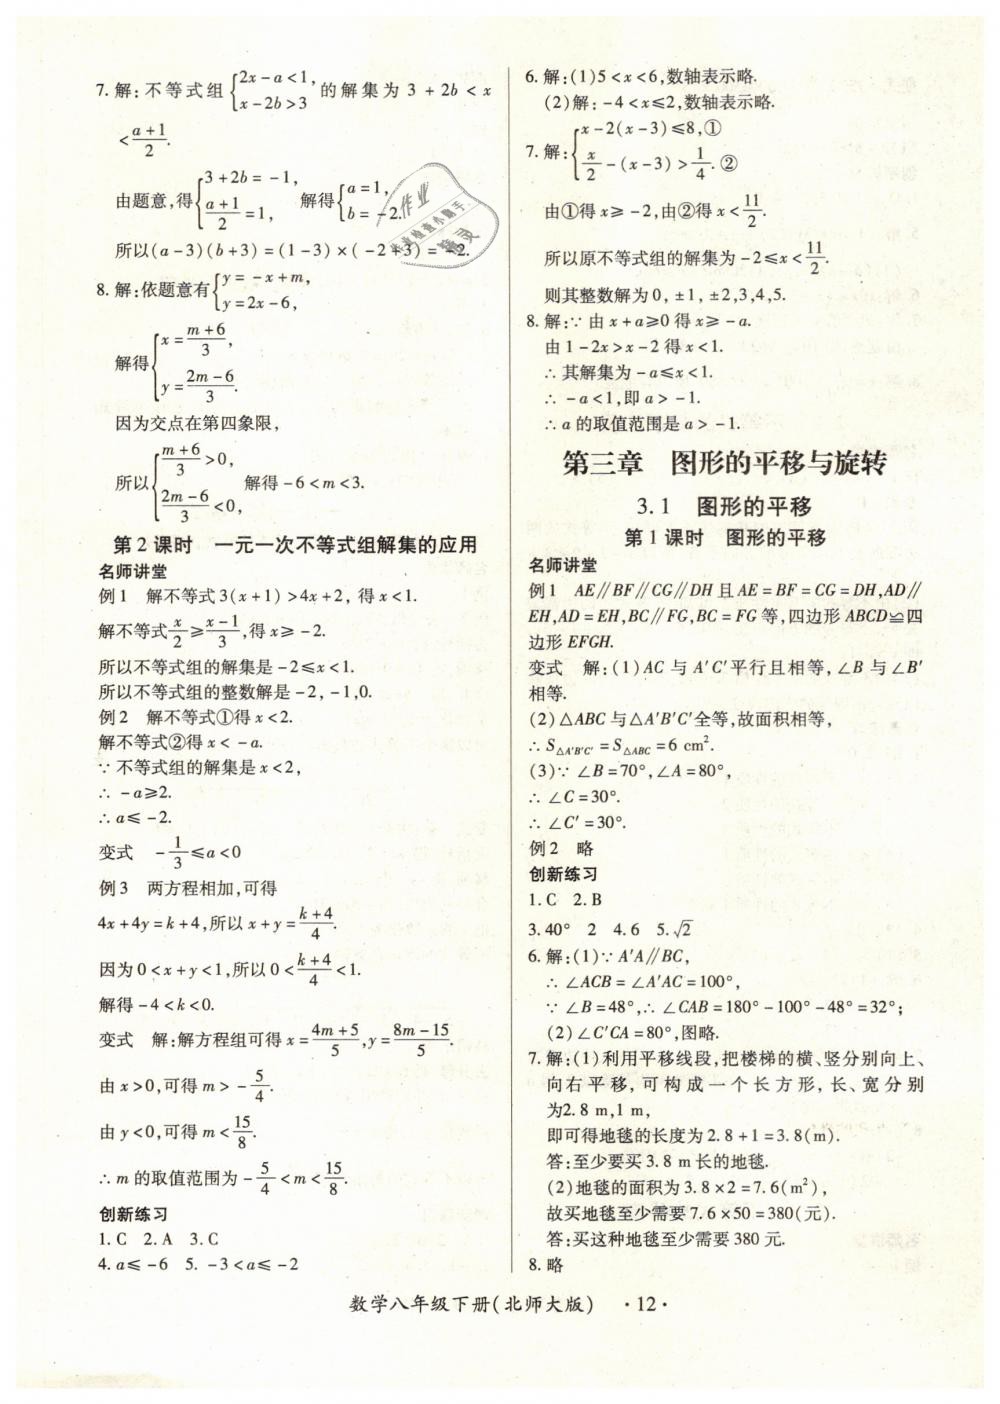 7.解:不等式组{2x-a<1, x-2b>3 的解集为 3+2b<x
<(a+1)/2.
由题意,得{3+2b=-1, (a+1)/2=1, 解得{a=1, b=-2.
所以(a-3)(b+3)=(1-3)×(-2+3)=-2.
8.解:依题意有{y=-x+m, y=2x-6,
解得{x=(m+6)/3, y=(2m-6)/3.
因为交点在第四象限,
所以{(m+6)/3>0, (2m-6)/3<0, 解得-6<m<3.
第2课时 一元一次不等式组解集的应用
名师讲堂
例1 解不等式3(x+1)>4x+2,得x<1.
解不等式x/2≥(x-1)/3,得x≥-2.
所以不等式组的解集是-2≤x<1.
所以不等式组的整数解是-2,-1,0.
例2 解不等式①得x<2.
解不等式②得x<-a.
∵不等式组的解集是x<2,
∴-a≥2.
∴a≤-2.
变式 -1/3≤a<0
例3 两方程相加,可得
4x+4y=k+4,所以x+y=(k+4)/4.
因为0<x+y<1,所以0<(k+4)/4<1.
解得-4<k<0.
变式 解:解方程组可得x=(4m+5)/5,y=(8m-15)/5.
由x>0,可得m>-5/4.
由y<0,可得m<15/8.
∴m的取值范围为-5/4<m<15/8.
创新练习
1.C 2.A 3.C
4.a≤-6 5.-3<a≤-2
6.解:(1)5<x<6,数轴表示略.
(2)解:-4<x≤2,数轴表示略.
7.解:{x-2(x-3)≤8,① x/2-(x-3)>1/4.②
由①得x≥-2,由②得x<11/2.
所以原不等式组的解集为-2≤x<11/2.
则其整数解为0,±1,±2,3,4,5.
8.解:∵由x+a≥0得x≥-a.
由1-2x>x-2得x<1.
∴其解集为-a≤x<1.
∴-a<1,即a>-1.
∴a的取值范围是a>-1.
第三章 图形的平移与旋转
3.1 图形的平移
第1课时 图形的平移
名师讲堂
例1 AE∥BF∥CG∥DH且AE=BF=CG=DH,AD∥
EH,AD=EH,BC∥FG,BC=FG等,四边形ABCD≌四
边形EFGH.
变式 解:(1)AC与A′C′平行且相等,∠B与∠B′
相等.
(2)△ABC与△A′B′C′全等,故面积相等,
∴S△A′B′C′=S△ABC=6 cm².
(3)∵∠B=70°,∠A=80°,
∴∠C=30°.
∴∠C′=30°.
例2 略
创新练习
1.C 2.B
3.40° 2 4.6 5.√2
6.解:(1)∵A′A∥BC,
∴∠ACB=∠A′AC=100°,
∵∠B=48°,∴∠CAB=180°-100°-48°=32°;
(2)∠C′CA=80°,图略.
7.解:(1)利用平移线段,把楼梯的横、竖分别向上、
向右平移,可构成一个长方形,长、宽分别
为2.8 m,1 m,
即可得地毯的长度为2.8+1=3.8(m).
答:至少要买3.8 m长的地毯.
(2)地毯的面积为3.8×2=7.6(m²),
故买地毯至少需要7.6×50=380(元).
答:买这种地毯至少需要380元.
8.略
数学八年级下册(北师大版) ·12·